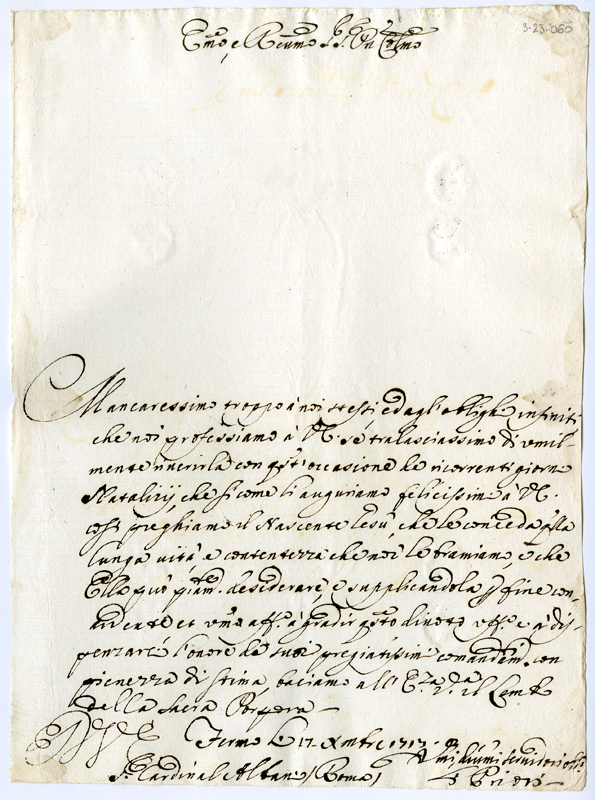 3-23-060
Em̃o, e Reũmo S.r S.r Pñ Colm̃o
Mancaressimo troppo à noi stessi, ed agl'oblighi infiniti
che noi professiamo à V.E. se tralasciassimo di vmil-
mente riuerirla con qst'occasione de ricorrenti giorni
Natalizij, che si come li auguriamo felicissimi à V.E.
così preghiamo il Nascente Iesù, che le conceda qlla
lunga uita, e contentezza che noi le bramiamo, e che
Ella può desiderare, e supplicandola fine con-
à gradir qsto diuoto vff.o e à dis-
penzarci l'onore de suoi pregiatissimi comandam.ti con
pienezza di stima, baciamo all' E.za V.a il Lembo
della Sacra Porpora
Di V.E.
Fermo li 17 Xmbre 1717
S.r Cardinal Albani (Roma)
Vmiliss̃mi Seruidori
Priori